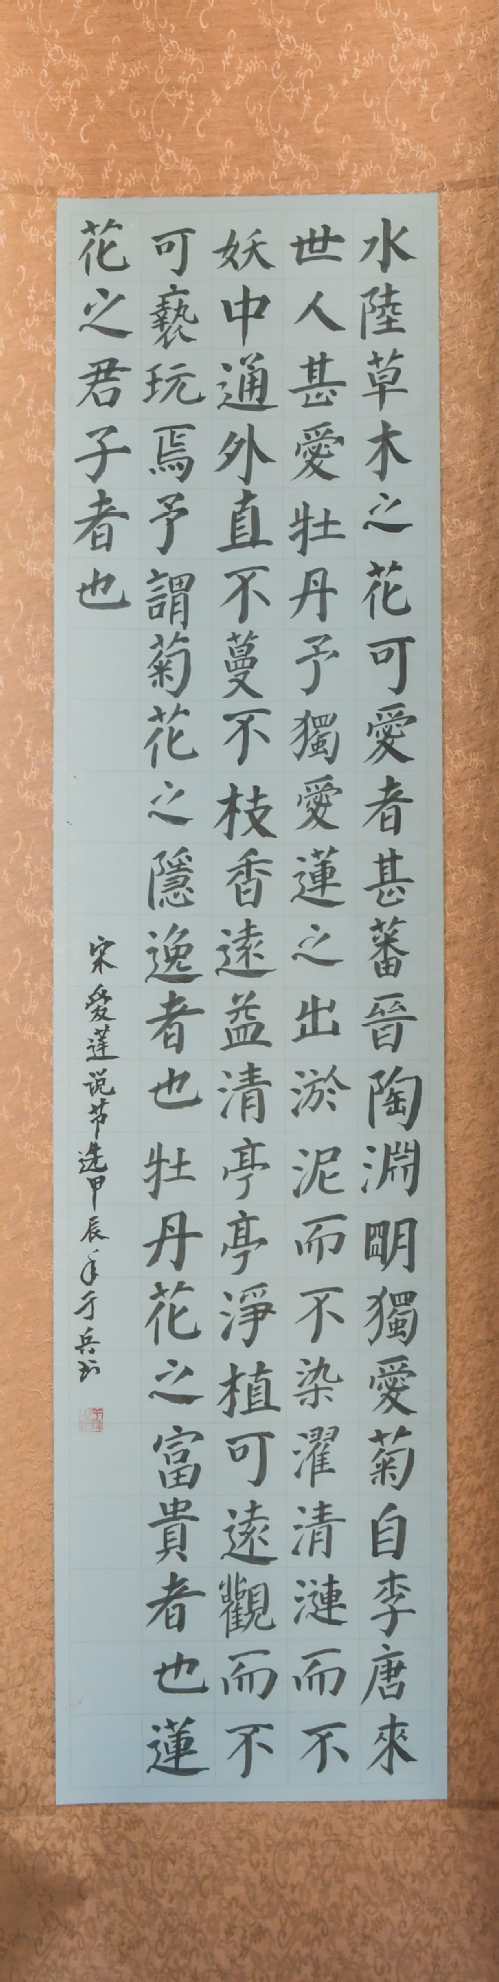 水陸草木之花可愛者甚蕃晉陶淵明獨愛菊自李唐來
世人甚愛牡丹予獨愛蓮之出淤泥而不染濯清漣而不
妖中通外直不蔓不枝香遠益清亭亭淨植可遠觀而不
可褻玩焉予謂菊花之隱逸者也牡丹花之富貴者也蓮
花之君子者也
宋爱莲说节选甲辰年于兵书